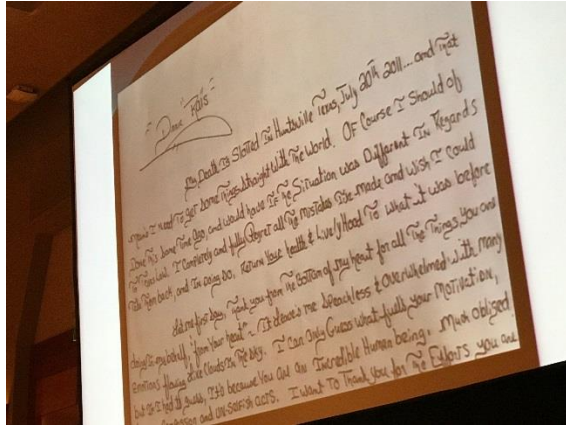 "Dear "Rais"
My Death Is Slotted In Huntsville Texas, July 20th 2011... and that
means I need to get some things straight With The World. Of Course I Should of
Done This Some Time Ago, and would have If The Situation was Different In Regards
To Texas Law. I Completely and fully Regret all The Mistakes I've made and Wish I Could
Take Them back, and In doing So, Return Your health & LivelyHood To what it was before
first Say, Thank you from The Bottom of my heart for all The Things You are
doing In my behalf, "from Your heart" - It leaves me Speachless & Overwhelmed, with Many
Emotions flowing Like Clouds In The Sky. I Can Only Guess what fuels Your Motivation,
but If I had to guess, It's because You are an Incredible Human being. Much Obliged.
and un-Selfish acts. I want To Thank You for The Efforts you are